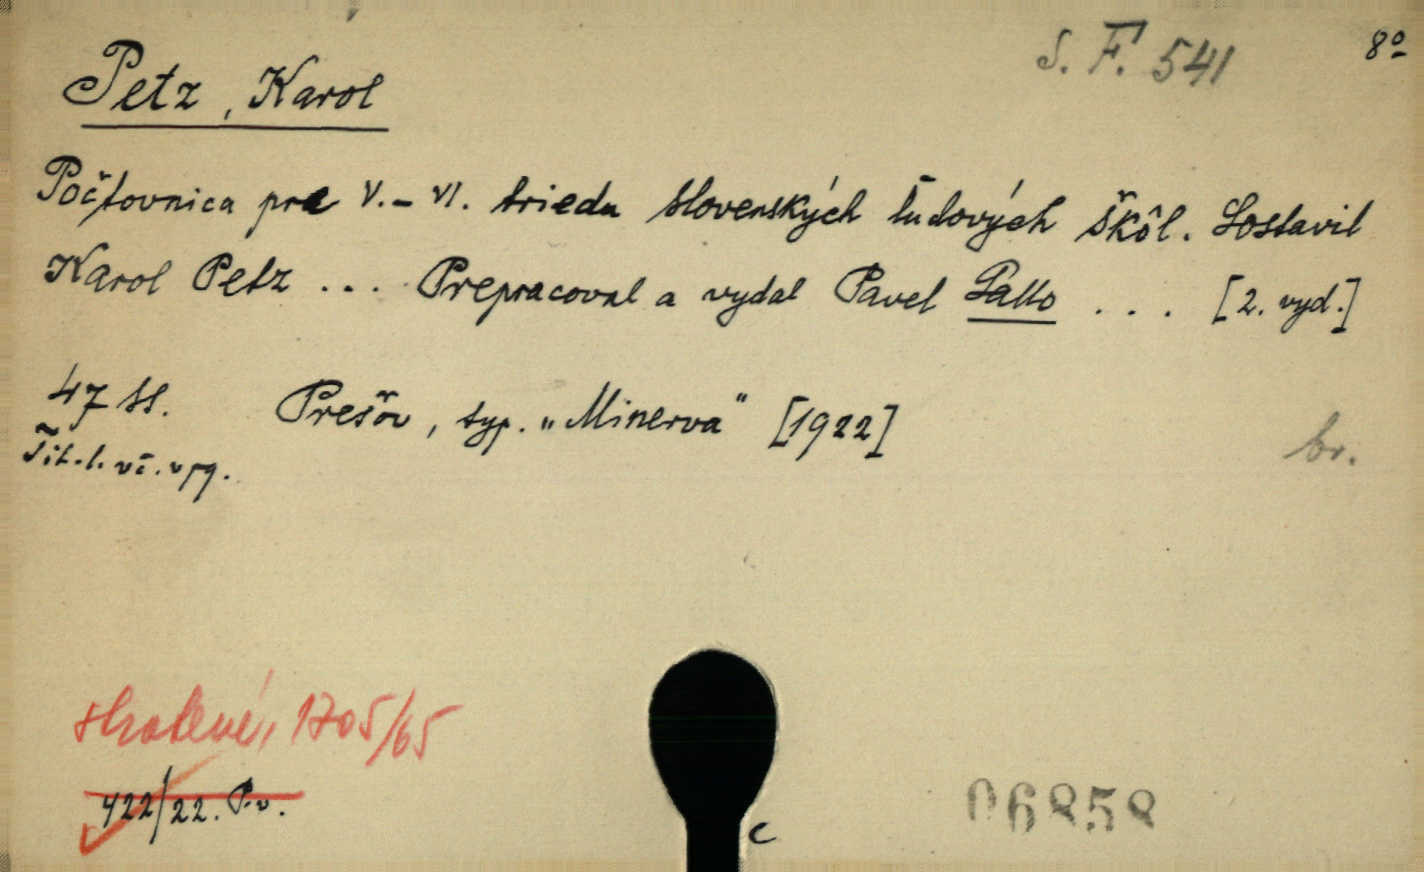 S. F. 541
8º
Petz, Karol
Počtovnica pre V.–VI. triedu slovenských ľudových škôl. Sostavil
Karol Petz ... Prepracoval a vydal Pavel Pallo ... [2. vyd.]
47 ss. Prešov, typ. „Minerva" [1922]
Tit. l. vč. v pg.
br.
stratené, 1705/65
422/22. P.v.
c
06858